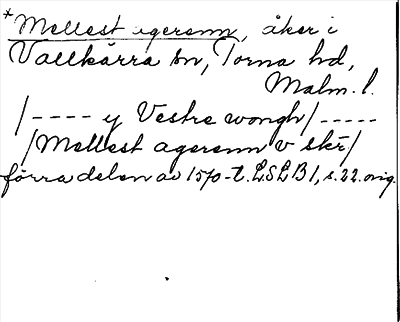 *Mellest agerenn, åker i
Vallkärra sn, Torna hd,
Malm. l.
/---- y Vestre wongh/-----
/Mellest agerenn v skr/
förra delen av 1570-t. LSLB1, s. 22. orig.